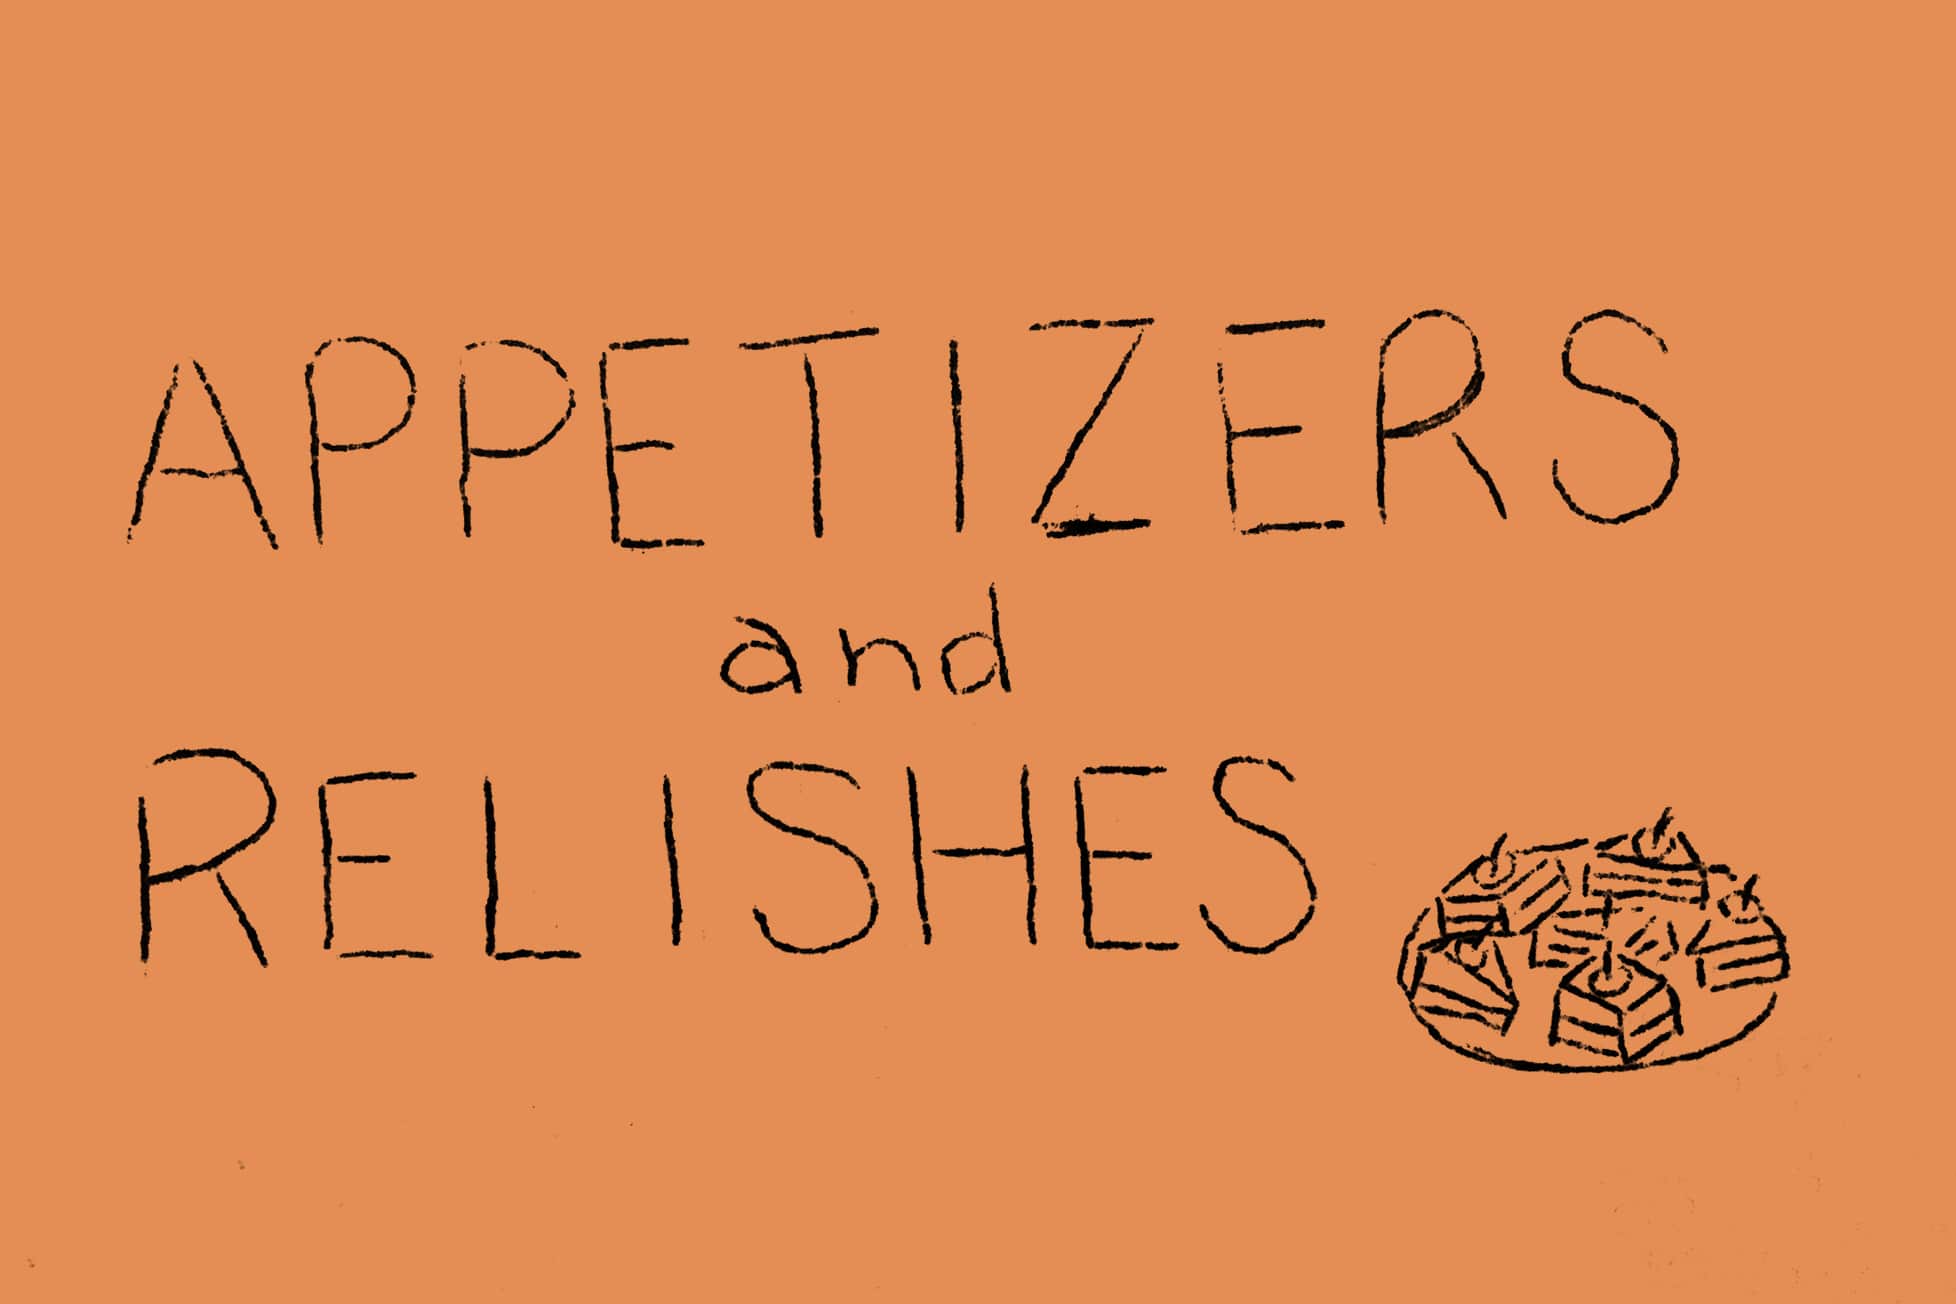 APPETIZERS
and
RELISHES